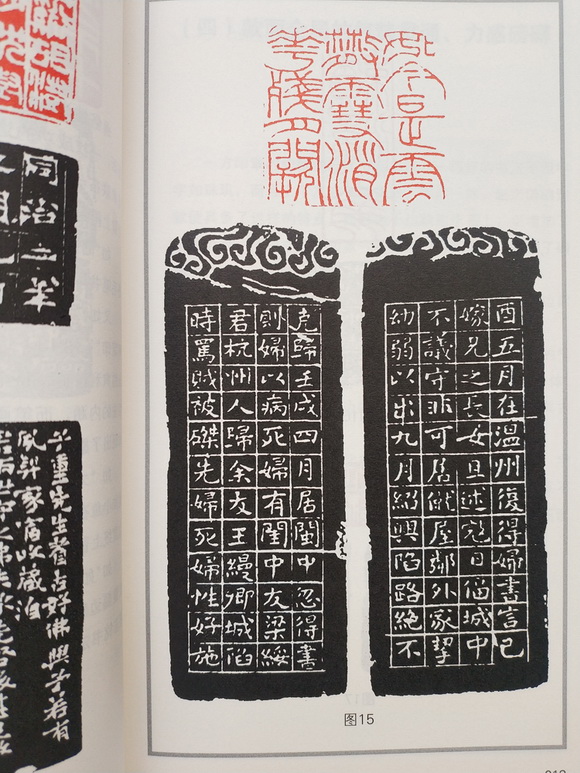 如今是雲
散雪消
花殘月闕
酉五月在溫州復得婦書言已
嫁兄之長女且述寇日偪城中
不議守非可居僦屋鄰外家挈
幼弱以出九月紹興陷路絕不
克歸壬戌四月居閩中忽得書
則婦以病死婦有閨中友梁綬
君杭州人歸余友王縵卿城陷
時罵賊被磔先婦死婦性好施
图15
同治二年